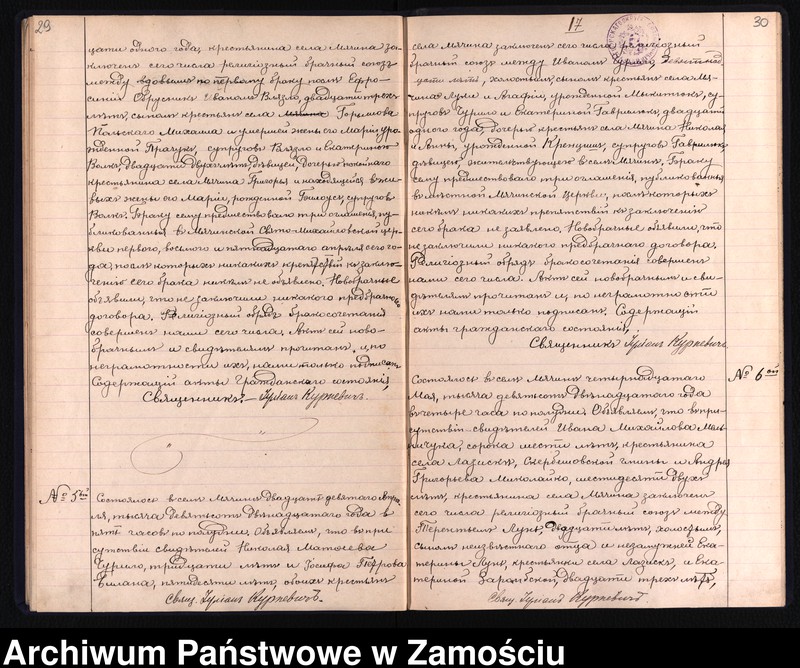 29
цати одного года, крестьянина села Мячина за-
ключенъ сего числа религіозный брачный союзъ
между вдовымъ по первому браку послѣ Евфро-
синіи Обрусникъ Иваномъ Вязло, двадцати трехъ
лѣтъ, сыномъ крестьянъ села Горышова
Польскаго Михаила и умершей жены его Маріи уро-
жденной супруговъ Вязло и Екатериною
Волкъ, двадцати двухъ лѣтъ, дѣвицей, дочерью покойнаго
крестьянина села Мячина Григорья и находящейся въ жи-
выхъ жены его Маріи, рожденной супруговъ
Волкъ. Браку сему предшествовало три оглашенія, пу-
бликованныя въ Мячинской Свято-Михайловской цер-
кви перваго, восьмого и пятнадцатаго апрѣля сего го-
да, послѣ которыхъ никакихъ препятствій къ заклю-
ченію сего брака никѣмъ не объявлено. Новобрачные
объявили, что не заключили никакого предбрачнаго
договора. Религіозный обрядъ бракосочетанія
совершенъ нами сего числа. Актъ сей ново-
брачнымъ и свидѣтелямъ прочитанъ и, по
неграмотности ихъ, нами только подписанъ.
Содержащій акты Гражданскаго состоянія,
Священникъ Іуліанъ Курневичъ.
№ 5ый
Состоялось въ селѣ Мячинѣ двадцать девятаго Апрѣ-
ля, тысяча девятсотъ двѣнадцатаго года въ
пять часовъ по полудни. Объявляемъ, что въ при-
сутствіи свидѣтелей Николая Матѳеева
Чурило, тридцати лѣтъ и Іосифа Петрова
Билана, пятидесяти лѣтъ, обоихъ крестьянъ
Свящ. Іуліанъ Курневичъ.
17
30
села Мячина заключенъ сего числа религіозный
брачный союзъ между Иваномъ Чурило,
лѣтъ, холостымъ, сыномъ крестьянъ села Мя-
чина Луки и Агафіи, урожденной Микитюкъ, су-
пруговъ Чурило и Екатериной Гаврилюкъ, двадцати
одного года, дочерью крестьянъ села Мячина Николая
и Анны, урожденной супруговъ Гаврилюкъ,
дѣвицею, жительствующею въ селѣ Мячинѣ. Браку
сему предшествовало три оглашенія, публикованныя
въ мѣстной Мячинской Церкви, послѣ которыхъ
никѣмъ никакихъ препятствій къ заключенію
сего брака не заявлено. Новобрачные объявили, что
не заключили никакого предбрачнаго договора.
Религіозный обрядъ бракосочетанія совершенъ
нами сего числа. Актъ сей новобрачнымъ и сви-
дѣтелямъ прочитанъ и, по неграмотности
ихъ, нами только подписанъ. Содержащій
акты гражданскаго состоянія,
Священникъ Іуліанъ Курневичъ.
№ 6ой
Состоялось въ селѣ Мячинѣ четырнадцатаго
Мая, тысяча девятсотъ двѣнадцатаго года
въ четыре часа по полудни. Объявляемъ, что въ при-
сутствіи свидѣтелей Ивана Михайлова
сорока шести лѣтъ, крестьянина
села Лазискъ, Скербешовской гмины и Андрея
Григорьева Миколайко, шестидесяти двухъ
лѣтъ, крестьянина села Мячина заключенъ
сего числа религіозный брачный союзъ между
Терентіемъ Лукъ, двадцати лѣтъ, холостымъ,
сыномъ неизвѣстнаго отца и незамужней Ека-
терины Лукъ, крестьянки села Лазискъ, и Ека-
териной двадцати трехъ лѣтъ,
Свящ. Іуліанъ Курневичъ.
Archiwum Państwowe w Zamościu